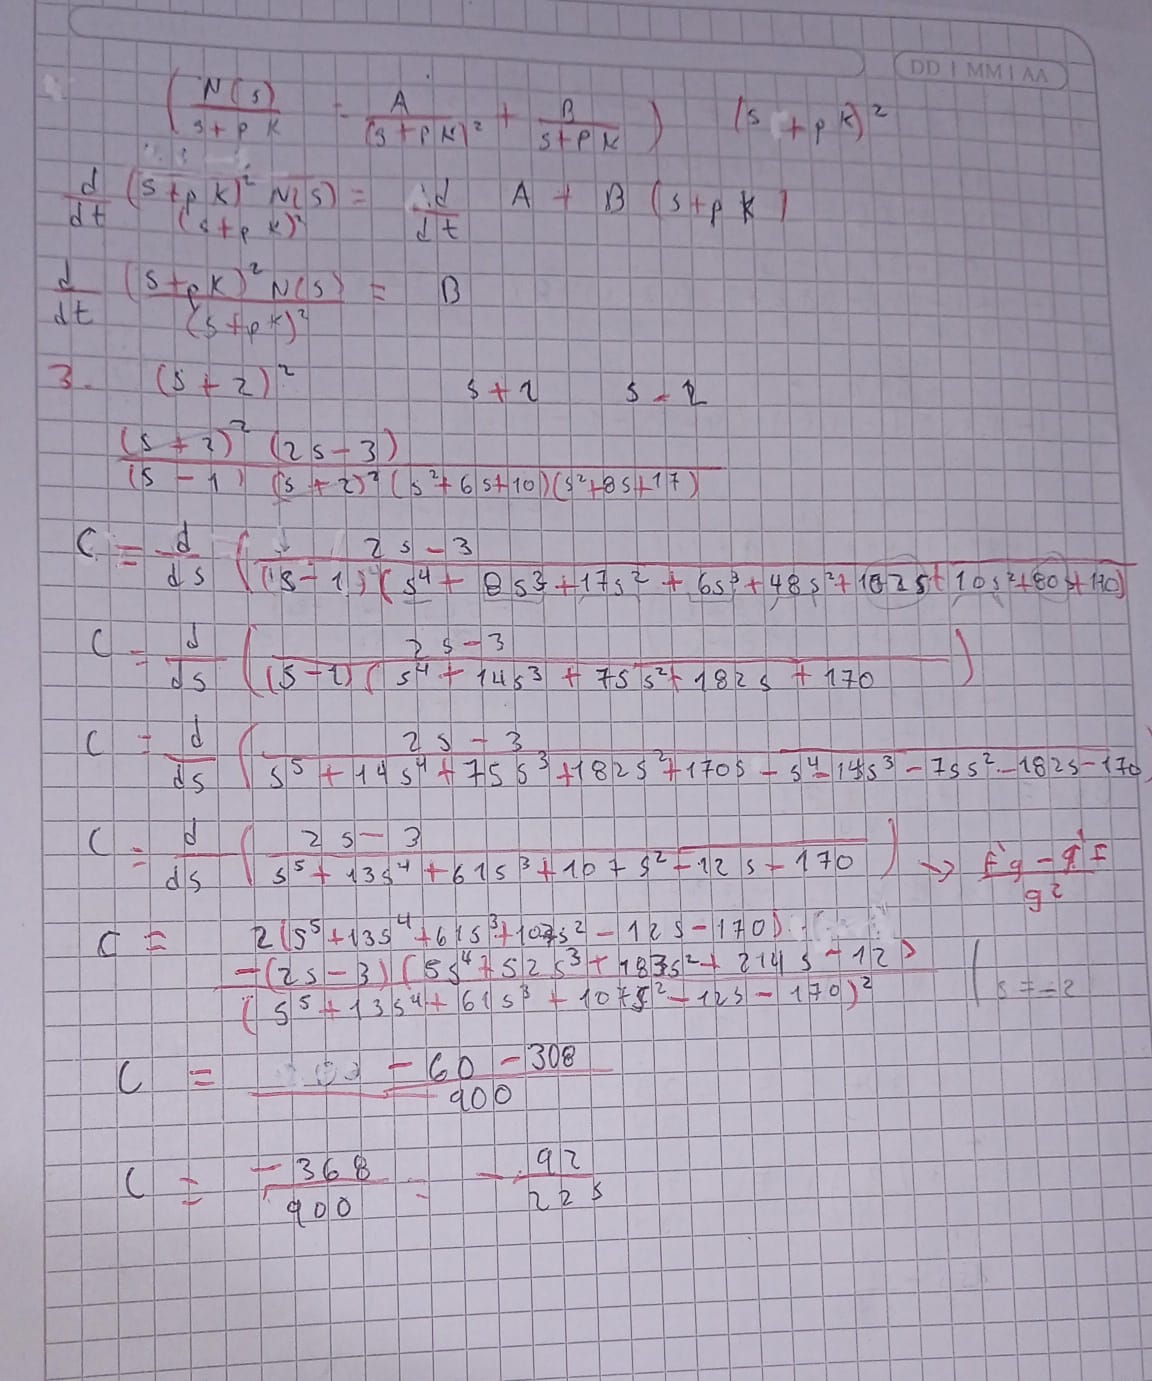 DD | MM | AA
( N(s)/(s+pk) - A/(s+pk)² + B/(s+pk) ) (s+pk)²
d/dt (s+pk)² N(s)/(s+pk)² = d/dt A + B (s+pk)
d/dt (s+pk)² N(s)/(s+pk)² = B
3. (s+2)² s+2 s-2
(s+2)² (2s-3)/(s-1) (s+2)² (s²+6s+10)(s²+8s+17)
C = d/ds ( 2s-3/(s-1)(s⁴+8s³+17s²+6s³+48s²+102s+10s²+80s+170) )
C = d/ds ( 2s-3/(s-1)(s⁴+14s³+75s²+182s+170) )
C = d/ds ( 2s-3/s⁵+14s⁴+75s³+182s²+170s-s⁴-14s³-75s²-182s-170 )
C = d/ds ( 2s-3/s⁵+13s⁴+61s³+107s²-12s-170 ) → f'g-g'f/g²
C = 2(s⁵+13s⁴+61s³+107s²-12s-170)
-(2s-3)(5s⁴+52s³+183s²+214s-12)
(s⁵+13s⁴+61s³+107s²-12s-170)² | s=-2
C = -60-308/900
C = -368/900 = -92/225